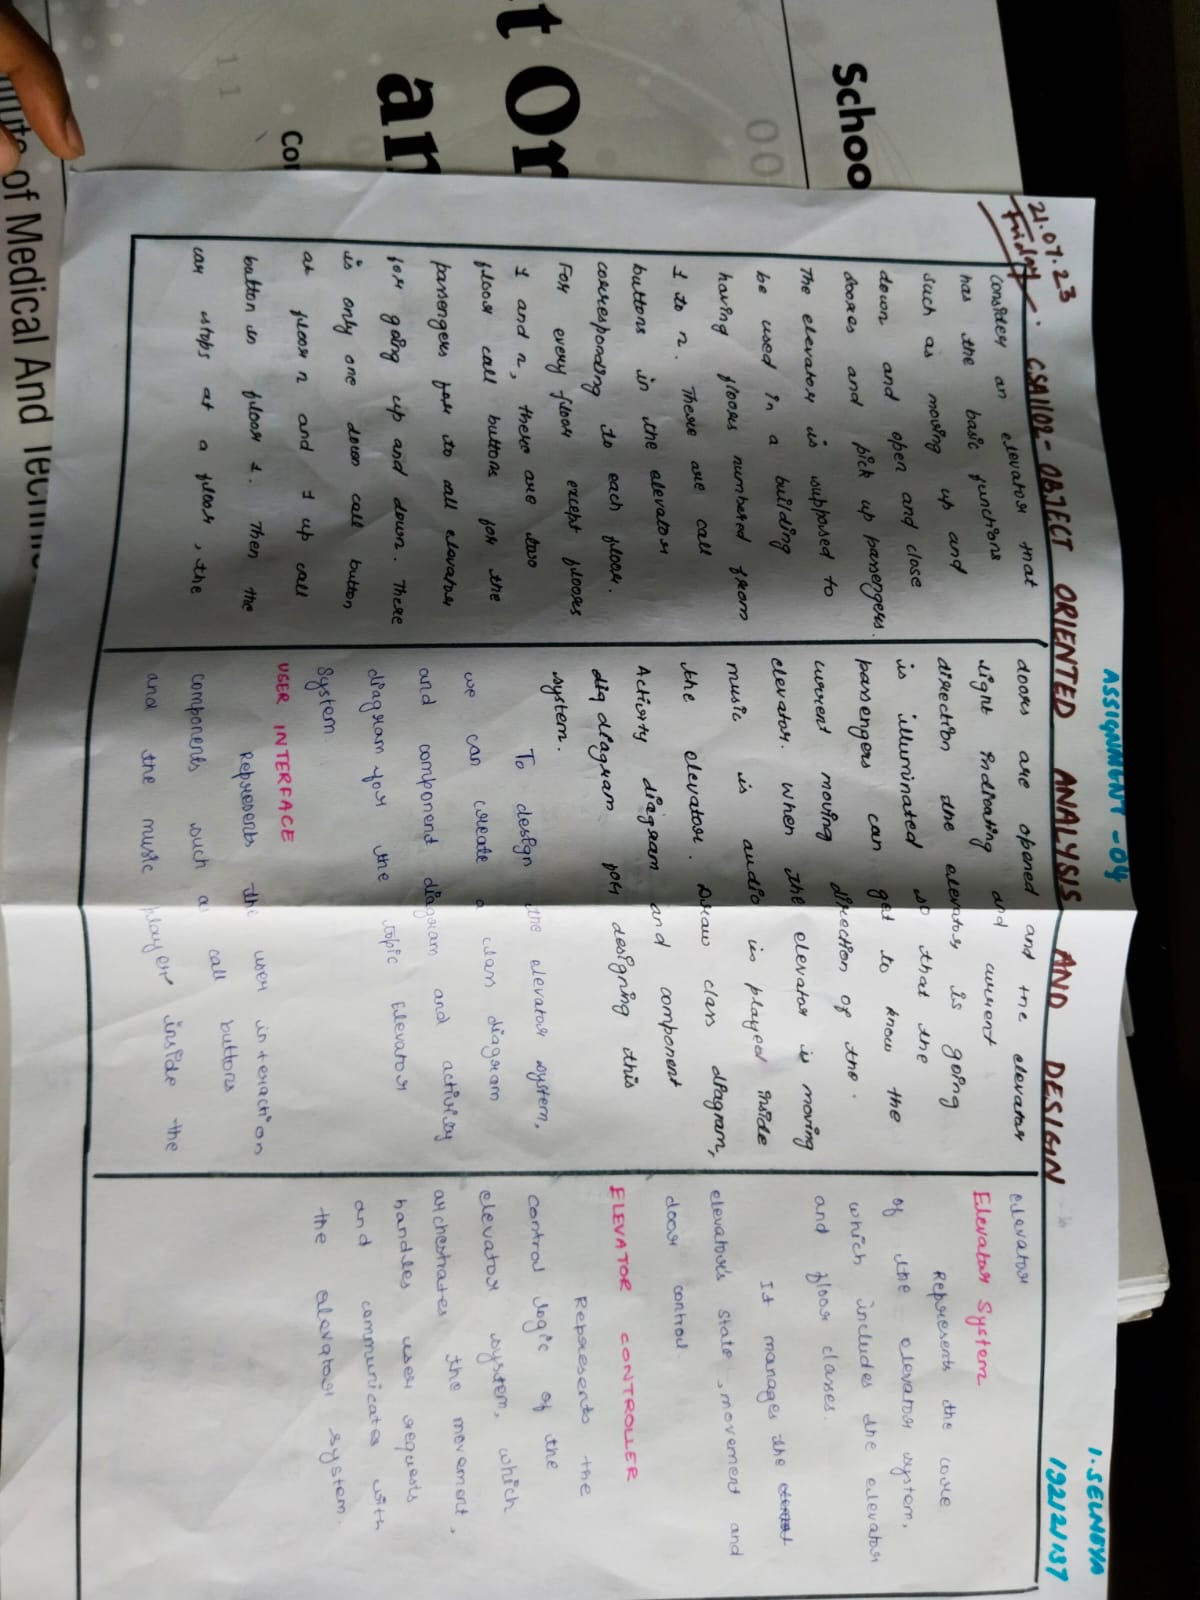 ASSIGNMENT - 04
I. SELNEYA
192121137
21.07.23
Friday
CSA1102 - OBJECT ORIENTED ANALYSIS AND DESIGN
Consider an elevator that
has the basic functions
such as moving up and
down and open and close
doores and pick up passengers.
The elevator is supposed to
be used in a building
having floors numbered from
1 to n. There are call
buttons in the elevator
corresponding to each floor.
For every floor except floores
1 and n, there are two
floor call buttons for the
passengers for to call elevator
for going up and down. There
is only one down call button
at floor n and 1 up call
button in floor 1. Then the
car stops at a floor, the
doors are opened and the elevator
light indicating and current
direction the elevator is going
is illuminated so that the
passengers can get to know the
current moving direction of the
elevator. When the elevator is moving
music is audio is played inside
the elevator. Draw class diagram,
Activity diagram and component
diagram for designing this
system.
To design the elevator system,
we can create a class diagram
and component diagram and activity
diagram for the topic Elevator
System
USER INTERFACE
Represents the user interaction
components such as call buttons
and the music player inside the
elevator
Elevator System
Represents the core
of the elevator system,
which includes the elevator
and floor classes.
It manages the
elevator's state, movement and
door control.
ELEVATOR CONTROLLER
Represents the
control logic of the
elevator system, which
archestrates the movement,
handles user requests
and communicates with
the elevator system.
Schoo
00
t Or
an
Co
11
of Medical And